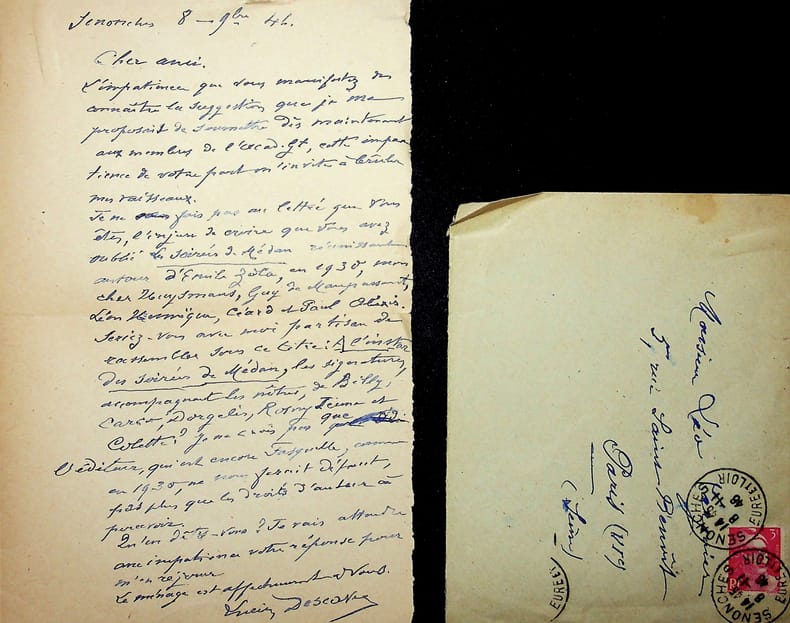 Senonches 8 - 9bre 46.
Cher ami.
L'impatience que vous manifestez de
connaître la suggestion que je me
proposais de soumettre dès maintenant
aux membres de l'Acad. Gt, cette impa
tience de votre part m'invite à brûler
mes vaisseaux.
Je ne fais pas au lettré que vous
êtes, l'injure de croire que vous avez
oublié les Soirées de Médan réunissant
autour d'Emile Zola, en 1930, mon
cher Huysmans, Guy de Maupassant,
Léon Hennique, Céard et Paul Alexis.
Seriez-vous avec moi partisan de
rassembler sous ce titre: A l'instar
des Soirées de Médan, les signatures,
accompagnant les nôtres, de Billy,
Carco, Dorgelès, Rosny Jeune et
Colette? Je ne crois pas que
l'éditeur, qui est encore Fasquelle, comme
en 1930, ne nous ferait défaut,
pas plus que les droits d'auteur à
percevoir.
Qu'en dites-vous? Je vais attendre
avec impatience votre réponse pour
m'en réjouir
Le ménage est affectueusement à vous.
Lucien Descaves
Monsieur Léo
5, rue Saint Benoît
Paris (VIe)
(Seine)
SENONCHES
EURE ET LOIR
3F
SENONCHES
EURE ET LOIR
EURE ET